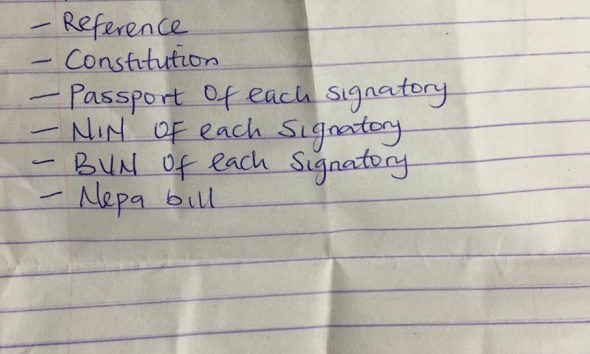 - Reference
- Constitution
- Passport of each signatory
- NIN OF each Signatory
- BVN of each Signatory
- Nepa bill